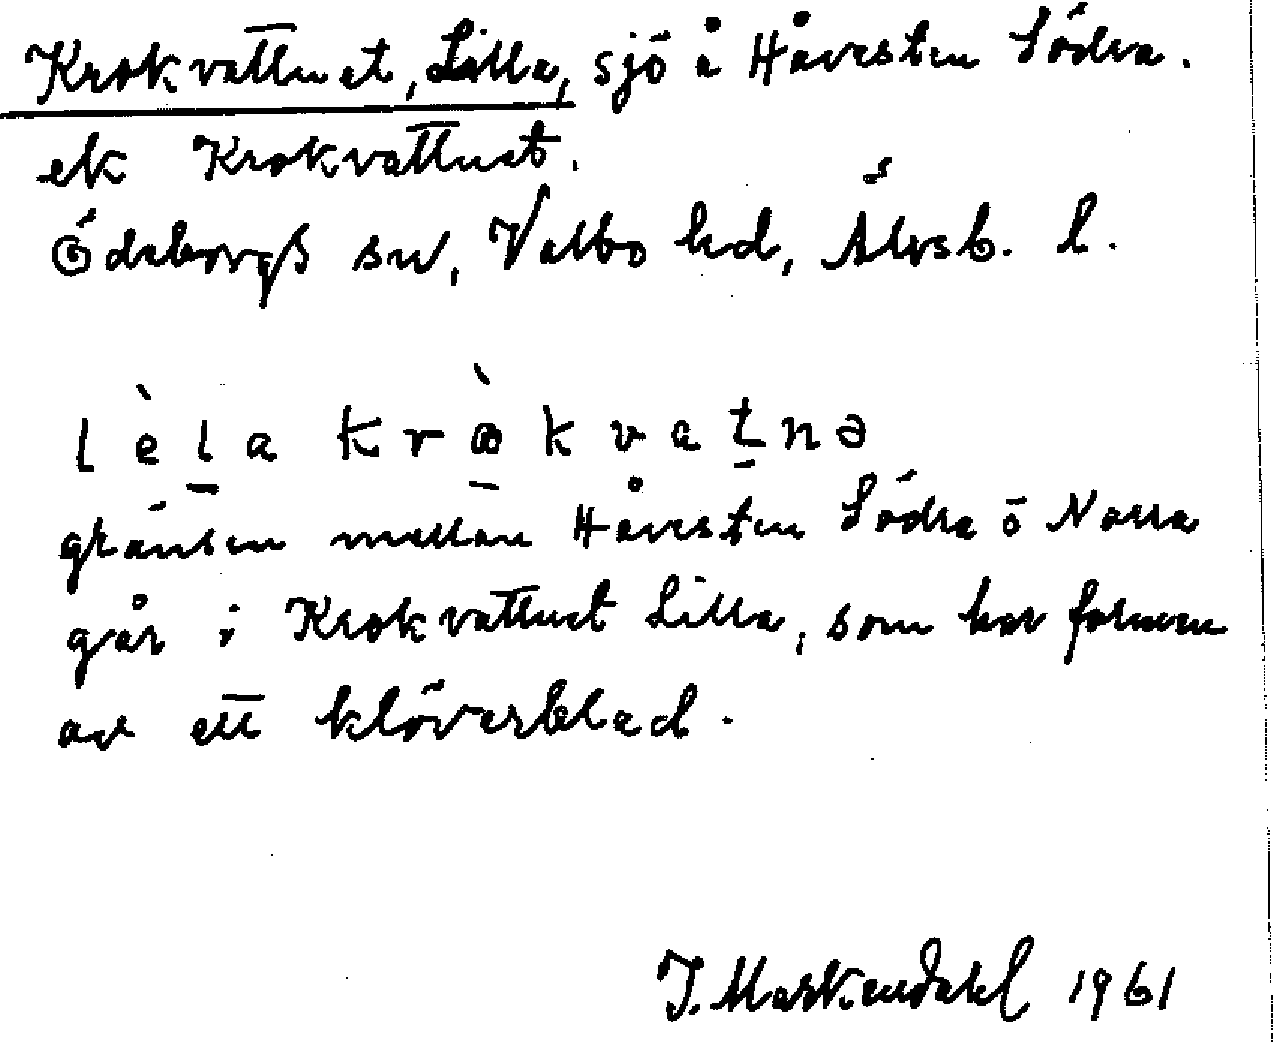 Krokvattnet, Lilla, sjö å Håvesten Södra.
ek Krokvattnet.
Ödeborgs sn, Valbo hd, Älvsb. l.
lèla kròkvatnə
gränsen mellan Håvesten Södra o Norra
går i Krokvattnet Lilla, som har formen
av ett klöverblad.
J. Markendahl 1961